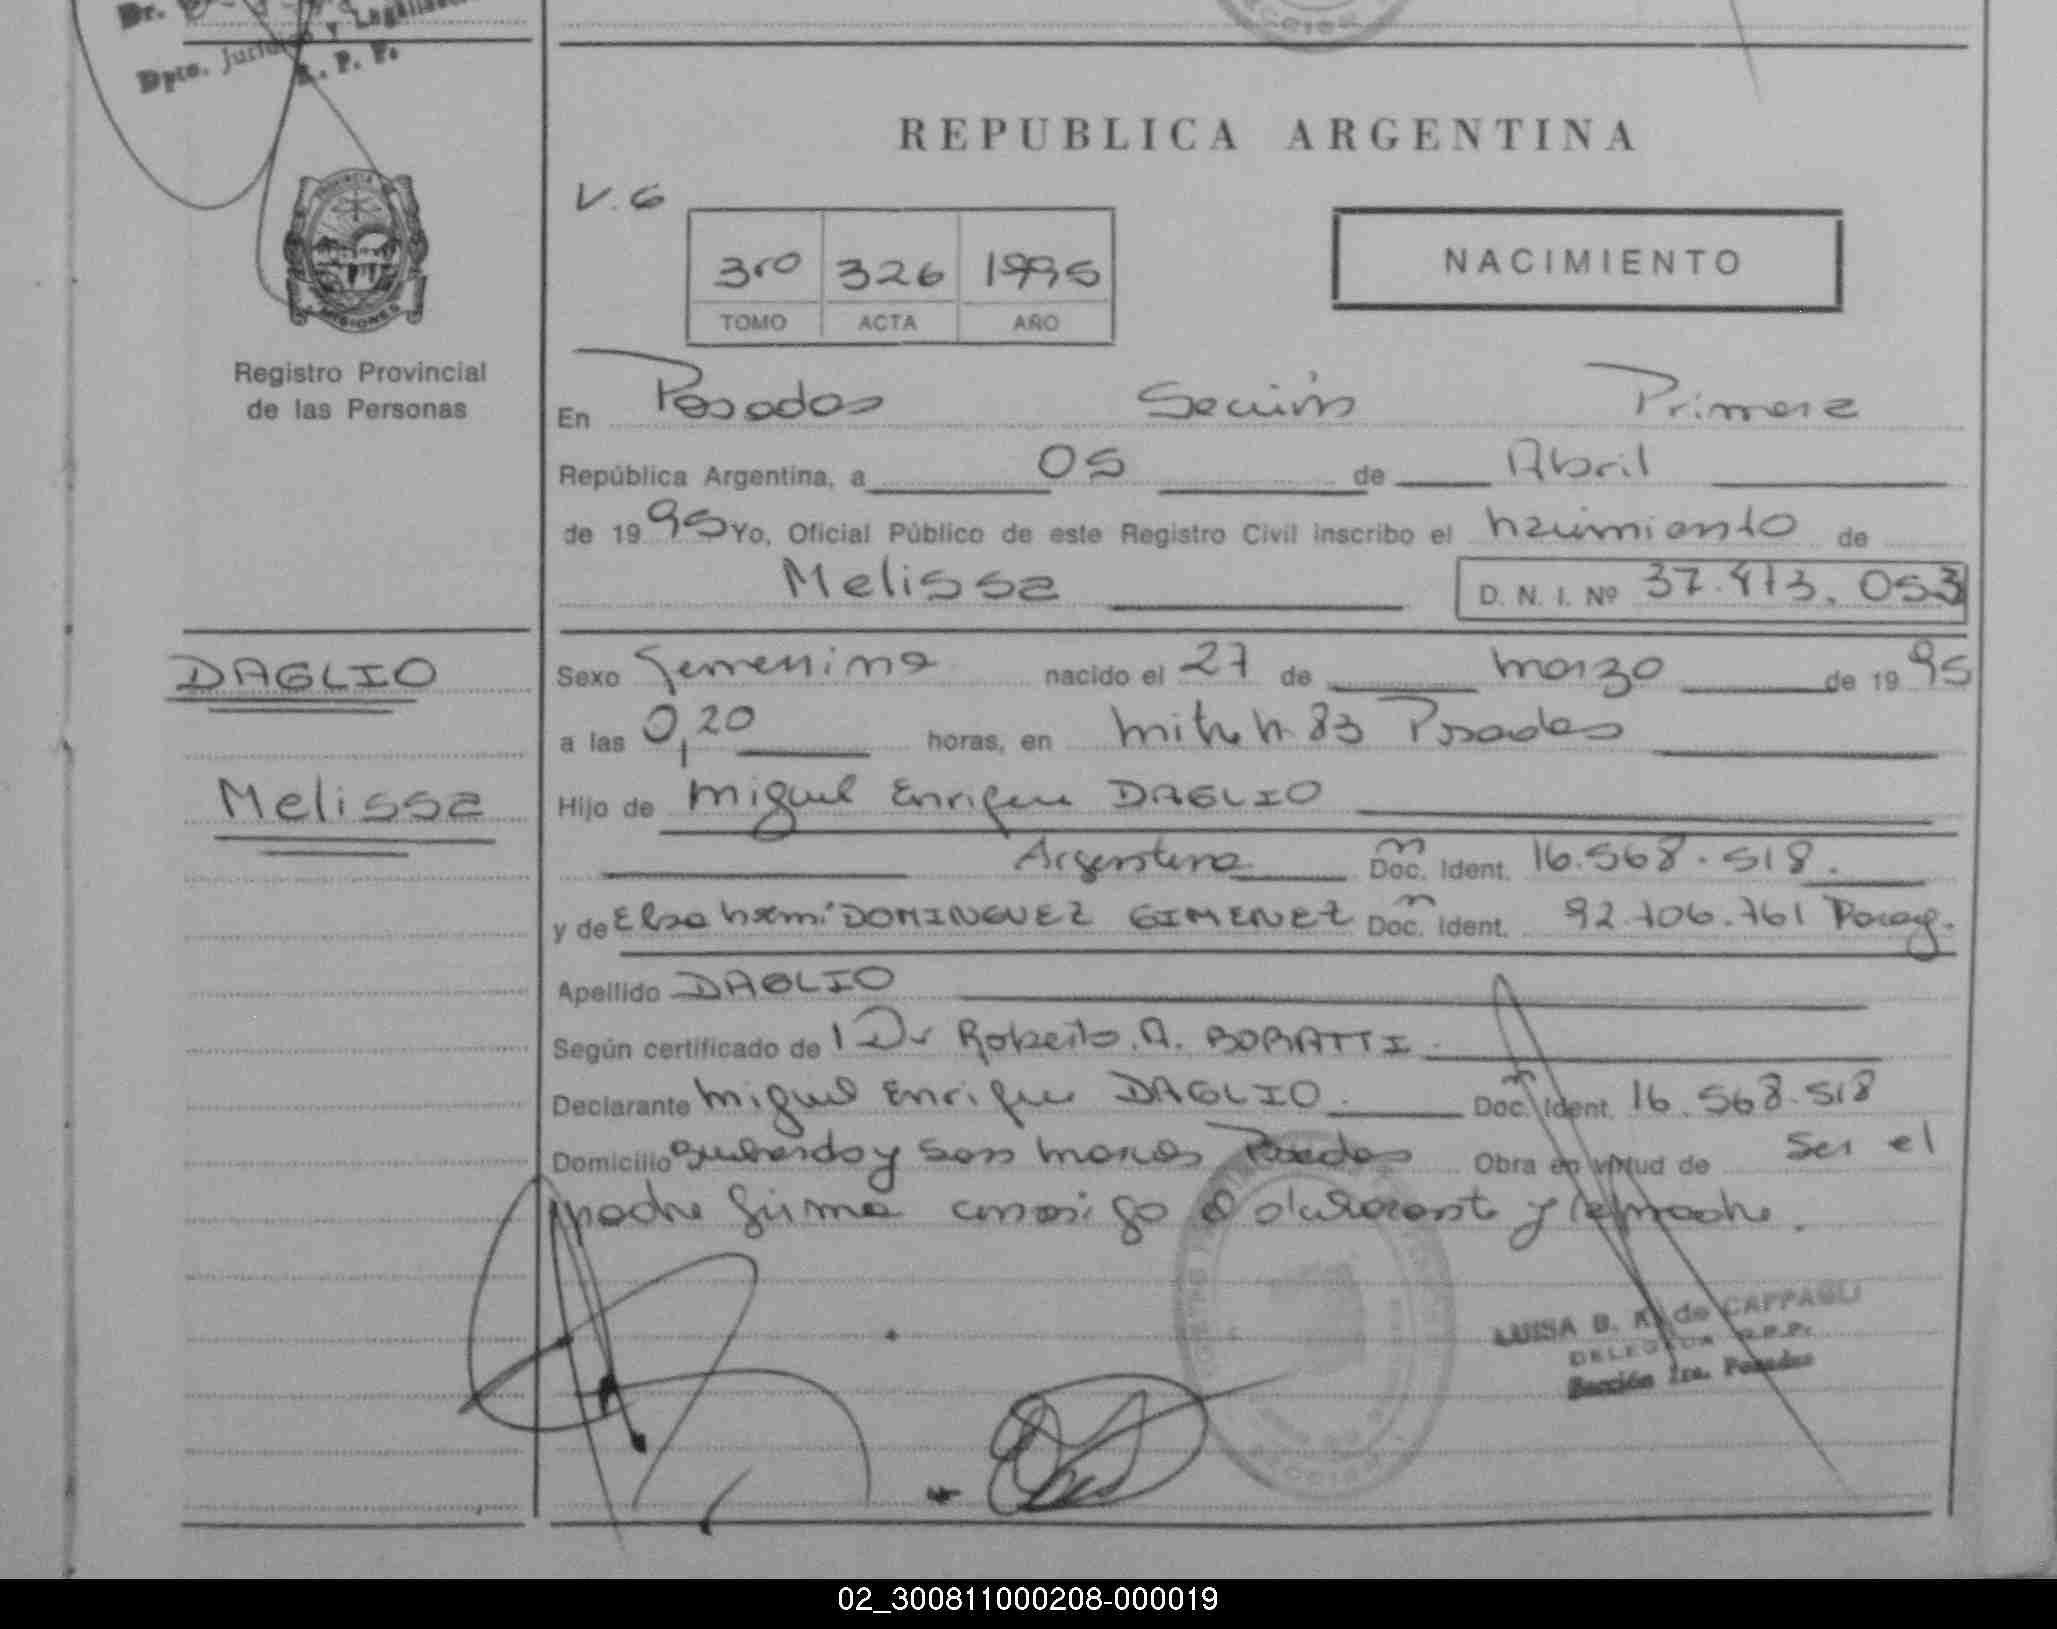 Dr.
Dpto. Jurídico y Legalizac
R. P. P.
SECCION
REPUBLICA ARGENTINA
V. 6
3ro 326 1995
TOMO ACTA AÑO
NACIMIENTO
PROVINCIA DE
MISIONES
Registro Provincial
de las Personas
En Posadas Sección Primera
República Argentina, a 05 de Abril
de 1995 Yo, Oficial Público de este Registro Civil inscribo el nacimiento de
Melissa D. N. I. Nº 37.473.053
DAGLIO
Sexo femenino nacido el 27 de marzo de 1995
a las 0,20 horas, en Mitre n 83 Posadas
Melissa
Hijo de Miguel Enrique DAGLIO
Argentino Doc. Ident. 16.568.518.
y de Elsa Noemí DOMINGUEZ GIMENEZ Doc. Ident. 92.706.761 Parag.
Apellido DAGLIO
Según certificado de 1 Dr Roberto. A. BORATTI
Declarante Miguel Enrique DAGLIO. Doc. Ident. 16.568.518
Domicilio y San Marcos Posadas Obra en virtud de ser el
padre firma conmigo el declarante y la madre.
LUISA B. K. de CAPPAGLI
DELEGADA R.P.P.
Sección 1ra. Posadas
02_300811000208-000019